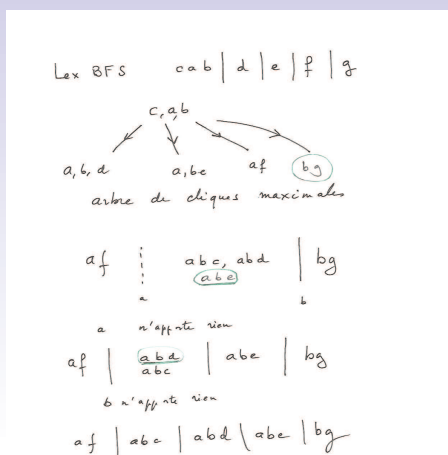 Lex BFS cab | d | e | f | g
c,a,b
a,b,d a,be af bg
arbre de cliques maximales
af abc, abd | bg
abe
a b
a n'apporte rien
af | abd | abe | bg
abc
b n'apporte rien
af | abc | abd | abe | bg